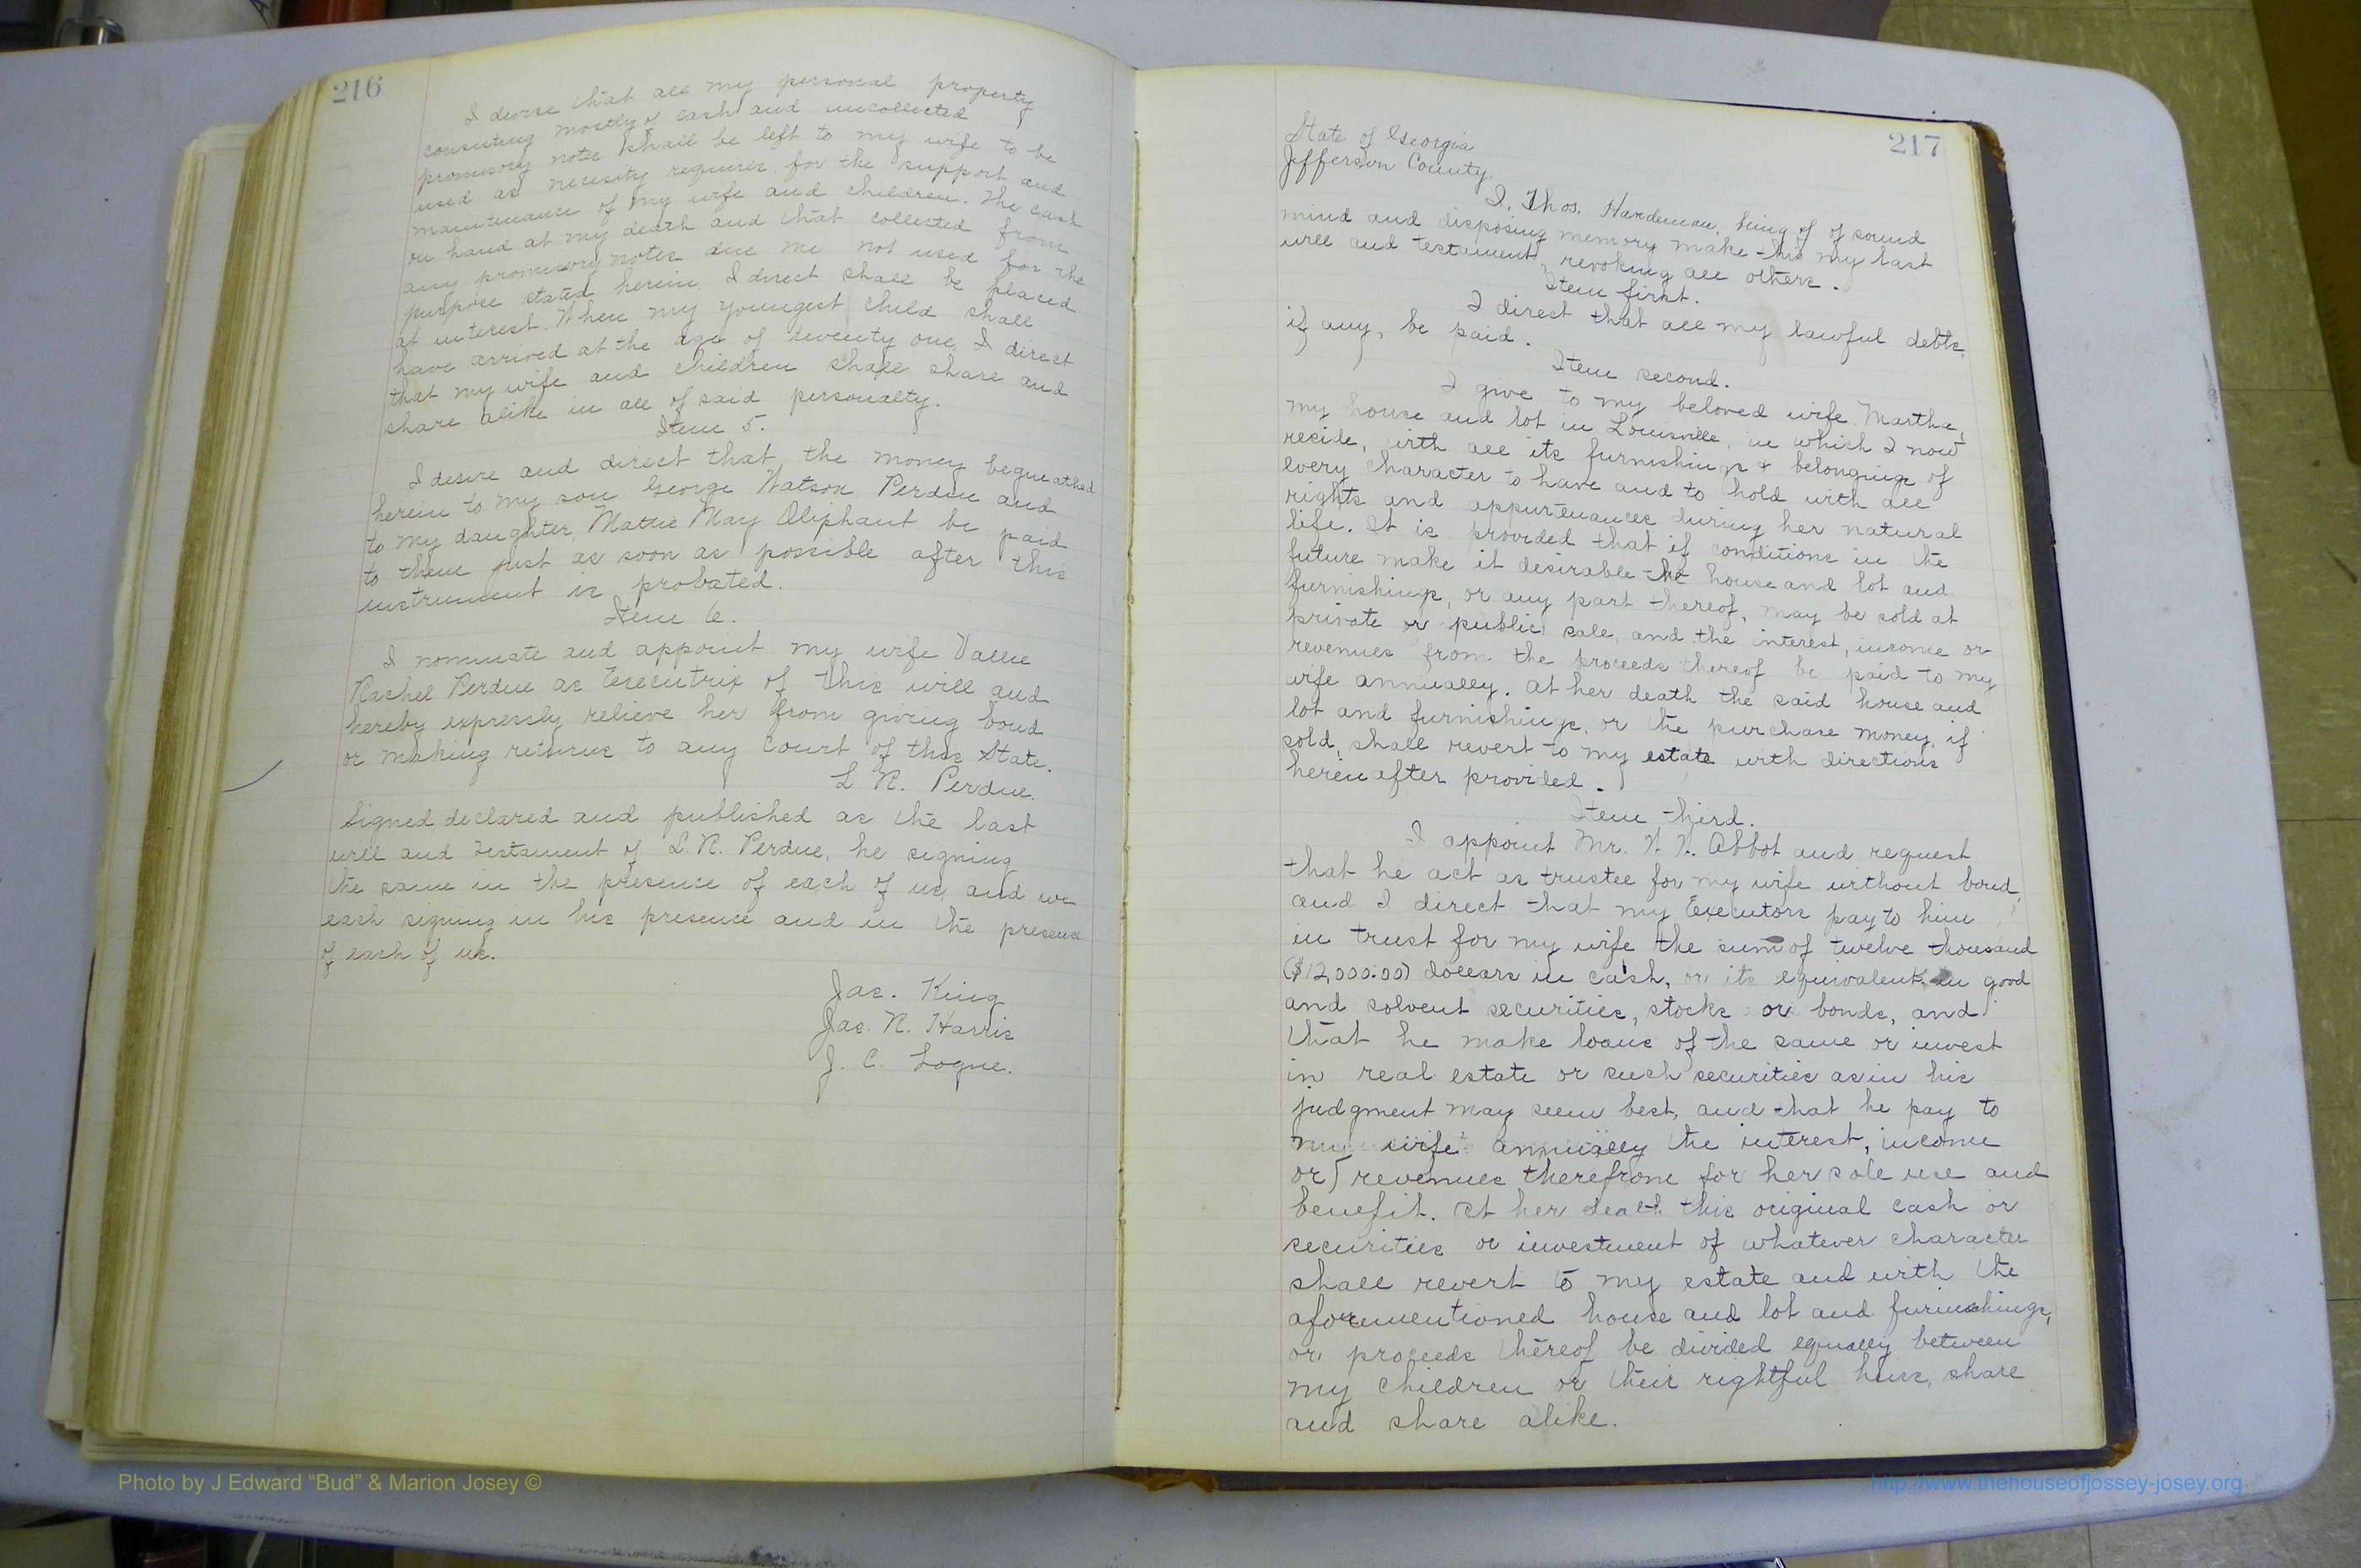 216
I devise that all my personal property
consisting mostly of cash and uncollected
promissory notes shall be left to my wife to be
used as necisity requires for the support and
maintenance of my wife and children. The cash
on hand at my death and that collected from
any promissory notes due me not used for the
purpose stated herein, I direct shall be placed
at interest. When my youngest child shall
have arrived at the age of twenty one, I direct
that my wife and children shall share and
share alike in all of said personalty.
Item 5.
I desire and direct that the money bequeathed
herein to my son George Watson Perdue and
to my daughter, Mattie May Oliphant be paid
to them just as soon as possible after this
instrument is probated.
Item 6.
I nominate and appoint my wife Vallie
Rachel Perdue as Executrix of this will and
hereby expressly relieve her from giving bond
or making returns to any Court of this State.
L. R. Perdue.
Signed declared and published as the last
will and testament of L. R. Perdue, he signing
the same in the presence of each of us, and we
each signing in his presence and in the presence
of each of us.
Jas. King
Jas. R. Harris
J. C. Logue.
217
State of Georgia
Jefferson County.
I, Thos. Hardeman, being of of sound
mind and disposing memory make this my last
will and testament, revoking all others.
Item first.
I direct that all my lawful debts,
if any, be paid.
Item second.
I give to my beloved wife, Martha,
my house and lot in Louisville, in which I now
reside, with all its furnishings & belongings of
every character to have and to hold with all
rights and appurtenances during her natural
life. It is provided that if conditions in the
future make it desirable the house and lot and
furnishings, or any part thereof, may be sold at
private or public sale, and the interest, income or
revenues from the proceeds thereof be paid to my
wife annually. At her death the said house and
lot and furnishings, or the purchase money, if
sold, shall revert to my estate with directions
herein after provided.
Item third.
I appoint Mr. W. W. Abbot and request
that he act as trustee for my wife without bond,
and I direct that my Executors pay to him
in trust for my wife the sum of twelve thousand
($12,000.00) dollars in cash, or its equivalent, in good
and solvent securities, stocks or bonds, and
that he make loans of the same or invest
in real estate or such securities as in his
judgment may seem best, and that he pay to
my wife annually the interest, income
or revenues therefrom for her sole use and
benefit. At her death this original cash or
securities or investment of whatever character
shall revert to my estate and with the
aforementioned house and lot and furnishings,
or proceeds thereof be divided equally between
my children or their rightful heirs, share
and share alike.
Photo by J Edward “Bud” & Marion Josey ©
http://www.thehouseofjossey-josey.org